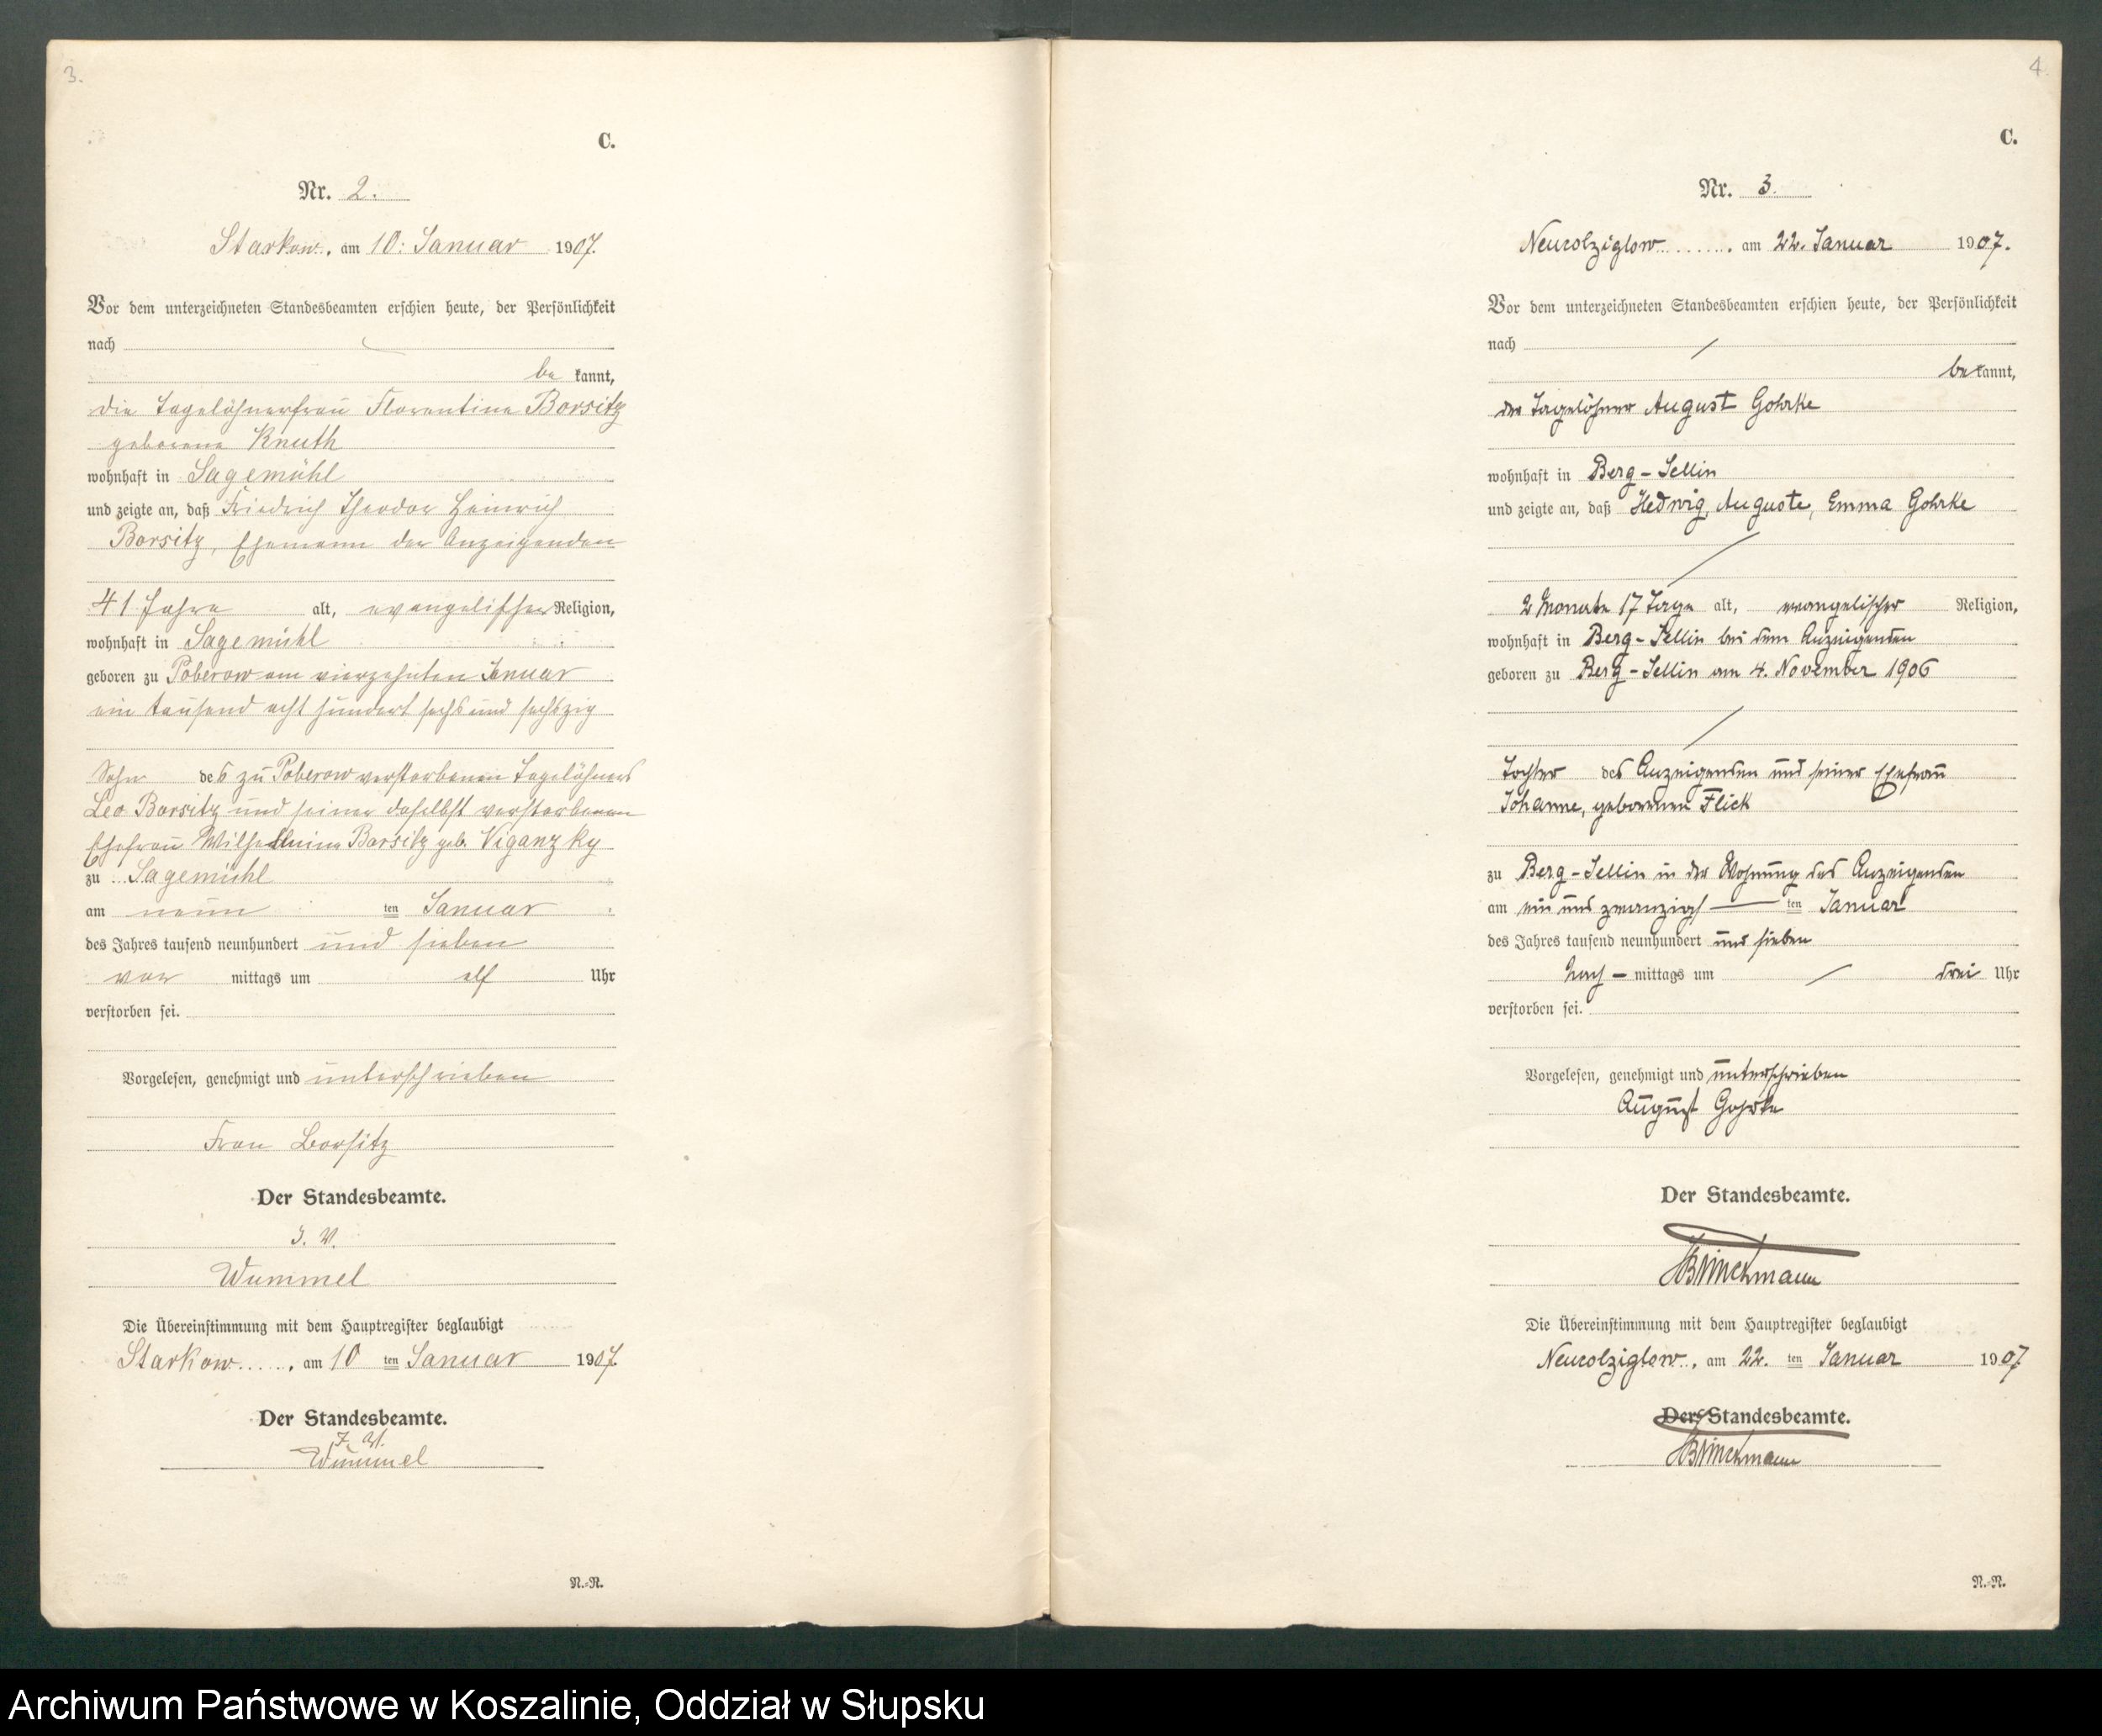 3.
C.
Nr. 2.
Starkow, am 10. Januar 1907.
Vor dem unterzeichneten Standesbeamten erschien heute, der Persönlichkeit
nach
be kannt,
die Tagelöhnerfrau Florentine Borsitz
geborene Knuth
wohnhaft in Sagemühl
und zeigte an, daß Friedrich Theodor Heinrich
Borsitz, Ehemann der Anzeigenden
41 Jahre alt, evangelischer Religion,
wohnhaft in Sagemühl
geboren zu Poberow am vierzehnten Januar
ein tausend acht hundert sechs und sechszig
Sohn des zu Poberow verstorbenen Tagelöhners
Leo Borsitz und seiner daselbst verstorbenen
Ehefrau Wilhelmine Borsitz geb. Viganzky
zu Sagemühl
am neun ten Januar
des Jahres tausend neunhundert und sieben
vor mittags um elf Uhr
verstorben sei.
Vorgelesen, genehmigt und unterschrieben
Frau Borsitz
Der Standesbeamte.
I. V.
Wummel
Die Übereinstimmung mit dem Hauptregister beglaubigt
Starkow, am 10 ten Januar 1907.
Der Standesbeamte.
I. V.
Wummel
N.-R.
4
C.
Nr. 3.
Neurolziglow, am 22. Januar 1907.
Vor dem unterzeichneten Standesbeamten erschien heute, der Persönlichkeit
nach
bekannt,
der Tagelöhner August Gohrke
wohnhaft in Berg-Sellin
und zeigte an, daß Hedwig, Auguste, Emma Gohrke
2 Monate 17 Tage alt, evangelischer Religion,
wohnhaft in Berg-Sellin bei dem Anzeigenden
geboren zu Berg-Sellin am 4. November 1906
Tochter des Anzeigenden und seiner Ehefrau
Johanne, geborenen Flick
zu Berg-Sellin in der Wohnung des Anzeigenden
am ein und zwanzigst ten Januar
des Jahres tausend neunhundert und sieben
Nach-mittags um drei Uhr
verstorben sei.
Vorgelesen, genehmigt und unterschrieben
August Gohrke
Der Standesbeamte.
Brinckmann
Die Übereinstimmung mit dem Hauptregister beglaubigt
Neurolziglow, am 22. ten Januar 1907
Der Standesbeamte.
Brinckmann
N.-R.
Archiwum Państwowe w Koszalinie, Oddział w Słupsku